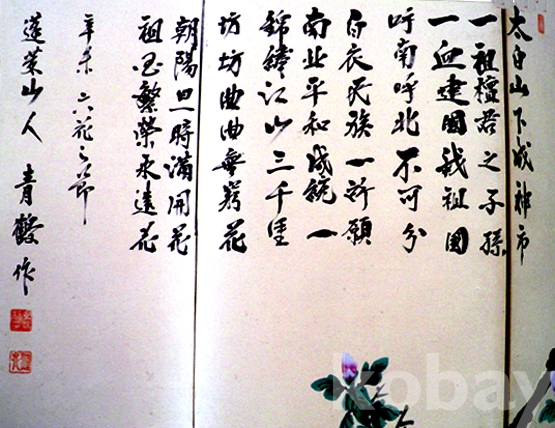 太白山下成神市
一祖檀君之子孫
一血建國我祖國
呼南呼北不可分
白衣民族一所願
南北平和成統一
錦繡江山三千里
坊坊曲曲無窮花
朝陽旦時滿開花
祖國繁榮永遠花
辛未六花之節
蓬萊山人 青鶴 作
kobay